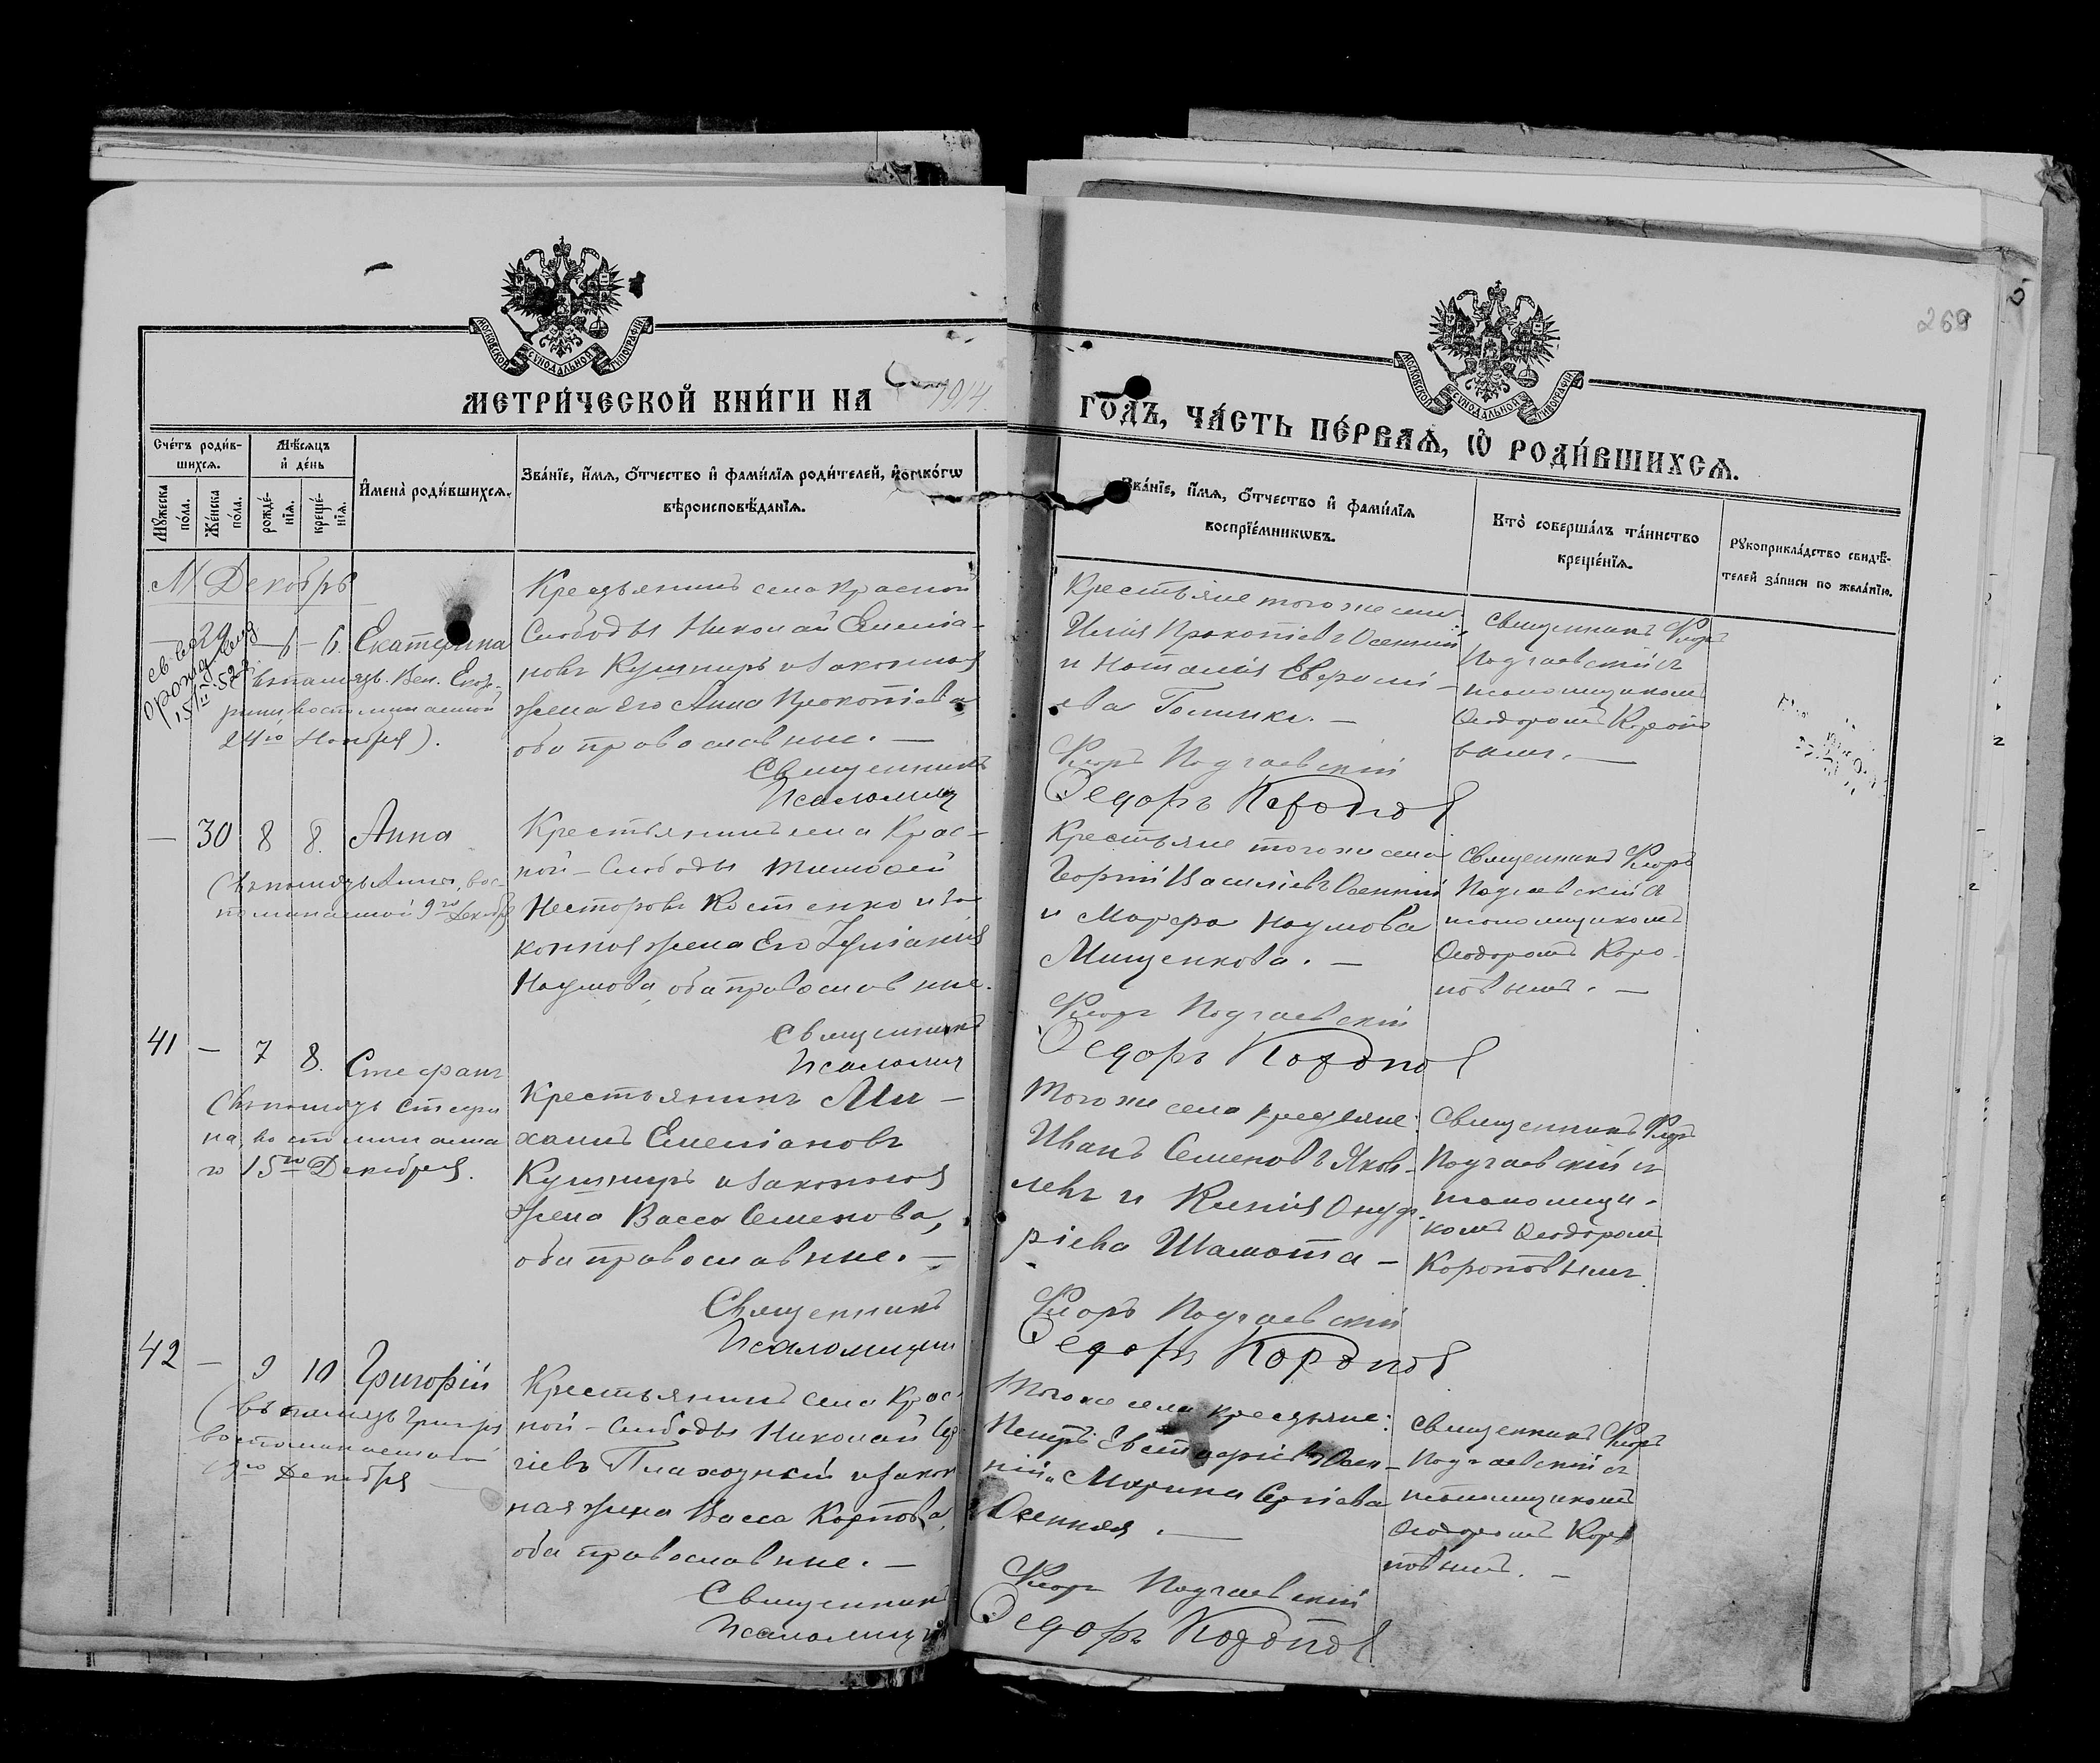 269
МОСКОВСКОЙ СѴНОДАЛЬНОЙ ТИПОГРАФІИ
МОСКОВСКОЙ СѴНОДАЛЬНОЙ ТИПОГРАФІИ
МЕТРИ́ЧЕСКОЙ КНИ́ГИ НА 1914
ГОДЪ, ЧА́СТЬ ПЕ́РВАѦ, Ѡ РОДИ́ВШИХСѦ.
Сче́тъ роди́в-
шихсѧ.
Мꙋ́жеска по́ла.
Же́нска по́ла.
Мѣ́сяцъ
и҆ де́нь
рожде́-
нїѧ.
креще́-
нїѧ.
И҆мена̀ роди́вшихсѧ.
Зва́нїе, и҆́мѧ, ѻ҆́тчество и҆ фами́лїѧ роди́телей, и҆ како́гѡ
вѣроисповѣ́данїѧ.
Зва́нїе, и҆́мѧ, ѻ҆́тчество и҆ фами́лїѧ
воспрїе́мникѡвъ.
Кто̀ соверша́лъ та́инство
креще́нїѧ.
Рꙋкоприкла́дство свидѣ́-
телей за́писи по жела́нїю.
М. Декабрь
— 29 6 6. Екатерина
(въ память Вел. Екате-
рины воспоминаемой
24го Ноября).
Крестьянинъ села Красной
Слободы Николай Емелiа-
новъ Кушниръ и законная
жена его Анна Прокопiева,
оба православные. —
Священникъ
Псаломщ
Крестьяне того же села:
Илiя Прокопiевъ Осеннiй
и Наталiя Евфимi-
ева Голинка. —
Флоръ Подгаевскiй
Федоръ Коропов
Священникъ Флоръ
Подгаевскiй съ
псаломщикомъ
Феодоромъ Коропо
вымъ. —
— 30 8 8. Анна
(въ память Анны, вос-
поминаемой 9го Декабр
Крестьянинъ села Крас-
ной-Слободы Тимофей
Несторовъ Костенко и за
конная жена Его Iулiанiя
Наумова, оба православные.
Священникъ
Псаломщ
Крестьяне того же села
Георгiй Васильевъ Осеннiй
и Марфа Наумова
Мищенкова. —
Флоръ Подгаевскiй
Федоръ Коропов
Священникъ Флоръ
Подгаевскiй съ
псаломщикомъ
Феодоромъ Коро-
повымъ. —
41 — 7 8. Стефанъ
(въ память Стефа
на, воспоминаема
го 15го Декабря.
Крестьянинъ Ми-
хаилъ Емелiановъ
Кушниръ и законная
жена Васса Семенова,
оба православные. —
Священникъ
Псаломщикъ
Того же села крестьяне:
Иванъ Семеновъ Яков-
левъ и Ксенiя Онуф-
рiева Шамота —
Флоръ Подгаевскiй
Федоръ Коропов
Священникъ Флоръ
Подгаевскiй съ
псаломщи-
комъ Феодоромъ
Короповымъ
42 — 9 10 Григорiй
(въ память Григорiя
воспоминаемаго
Декабря
Крестьянинъ села Крас
ной-Слободы Николай Сер
гiевъ Плахотный и закон
ная жена Васса Карпова,
оба православные. —
Священникъ
Псаломщикъ
Того же села крестьяне:
Петръ Евстафiевъ Осен-
нiй и Марина Сергiева
Осенняя. —
Флоръ Подгаевскiй
Федоръ Коропов
Священникъ Флоръ
Подгаевскiй съ
псаломщикомъ
Феодоромъ Коро
повымъ. —